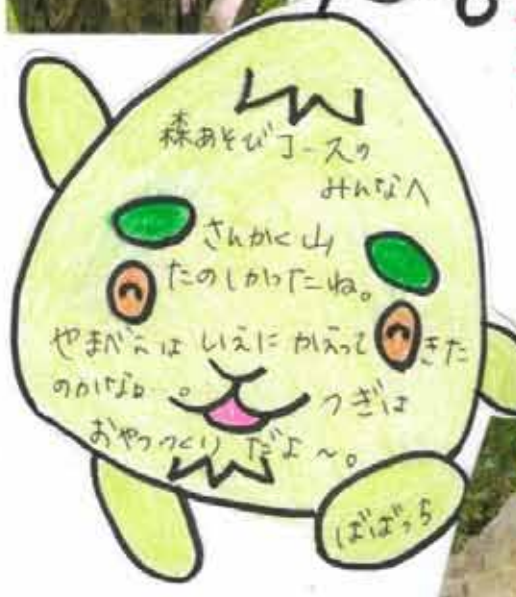 森あそびコースの
みんなへ
さんかく山
たのしかったね。
やまべえは いえに かえって きた
のかなぁ…。
つぎは
おやつつくり だよ～。
ばばっち